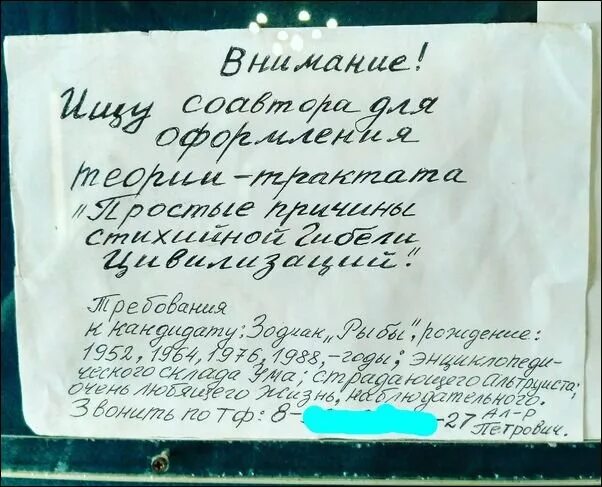 Внимание!
Ищу соавтора для
оформления
теории-трактата
"Простые причины
стихийной Гибели
Цивилизаций".
Требования
к кандидату: Зодиак "Рыбы", рождение:
1952, 1964, 1976, 1988,-годы; энциклопеди-
ческого склада Ума; страдающего Альтруиста;
очень любящего Жизнь, наблюдательного.
Звонить по тф: 8- -27 Ал-р
Петрович.